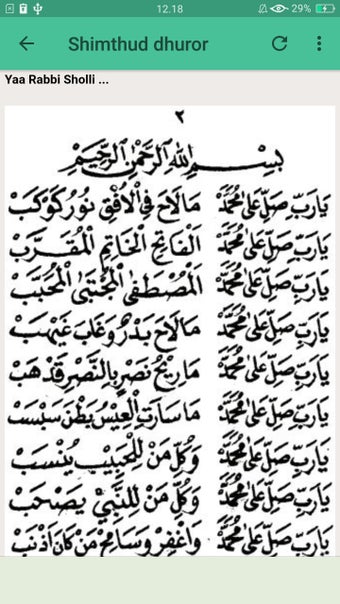 12.18
29%
Shimthud dhuror
Yaa Rabbi Sholli ...
٢
بِسْمِ اللهِ الرَّحْمٰنِ الرَّحِيْمِ
يَارَبِّ صَلِّ عَلَىٰ مُحَمَّدْ مَالَاحَ فِي الْاُفْقِ نُوْرُ كَوْكَبْ
يَارَبِّ صَلِّ عَلَىٰ مُحَمَّدْ اَلْفَاتِحِ الْخَاتِمِ الْمُقَرَّبْ
يَارَبِّ صَلِّ عَلَىٰ مُحَمَّدْ اَلْمُصْطَفَى الْمُجْتَبَى الْمُحَبَّبْ
يَارَبِّ صَلِّ عَلَىٰ مُحَمَّدْ مَالَاحَ بَدْرٌ وَغَابَ غَيْهَبْ
يَارَبِّ صَلِّ عَلَىٰ مُحَمَّدْ مَارِيْحُ نَصْرٍ بِالنَّصْرِ قَدْهَبْ
يَارَبِّ صَلِّ عَلَىٰ مُحَمَّدْ مَاسَارَتِ الْعِيْسُ بَطْنَ سَبْسَبْ
يَارَبِّ صَلِّ عَلَىٰ مُحَمَّدْ وَكُلِّ مَنْ لِلْحَبِيْبِ يُنْسَبْ
يَارَبِّ صَلِّ عَلَىٰ مُحَمَّدْ وَكُلِّ مَنْ لِلنَّبِيِّ يَصْحَبْ
يَارَبِّ صَلِّ عَلَىٰ مُحَمَّدْ وَاغْفِرْ وَسَامِحْ مَنْ كَانَ اَذْنَبْ